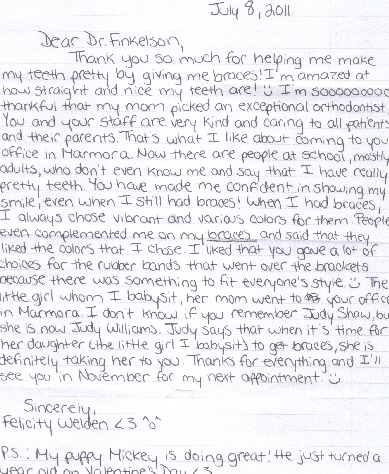 July 8, 2011
Dear Dr. Finkelson,
Thank you so much for helping me make
my teeth pretty by giving me braces! I'm amazed at
how straight and nice my teeth are! :) I'm soooooooo
thankful that my mom picked an exceptional orthodontist.
You and your staff are very kind and caring to all patients
and their parents. That's what I like about coming to you
office in Marmora. Now there are people at school, mostly
adults, who don't even know me and say that I have really
pretty teeth. You have made me confident in showing my
smile, even when I still had braces! When I had braces,
I always chose vibrant and various colors for them. People
even complemented me on my braces and said that they
liked the colors that I chose. I liked that you gave a lot of
choices for the rubber bands that went over the brackets
because there was something to fit everyone's style. :) The
little girl whom I babysit, her mom went to your office
in Marmora. I don't know if you remember Judy Shaw, bu
she is now Judy Williams. Judy says that when it's time for
her daughter (the little girl I babysit) to get braces, she is
definitely taking her to you. Thanks for everything and I'll
see you in November for my next appointment. :)
Sincerely,
Felicity Welden <3 ^o^
P.S.: My puppy Mickey is doing great! He just turned a
year old on Valentine's Day <3